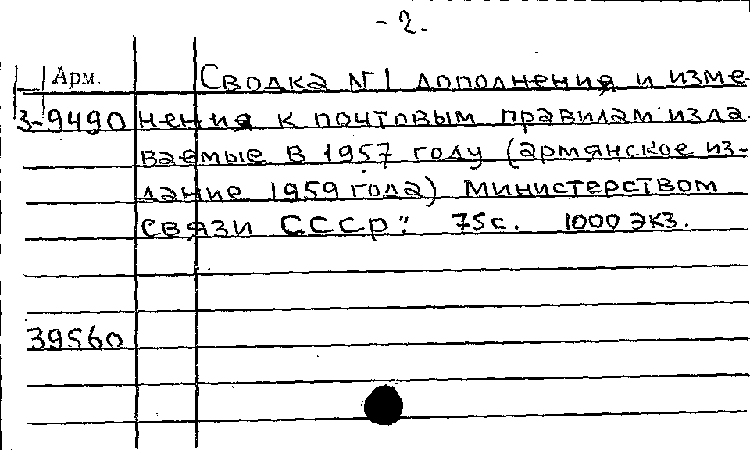 - 2.
Арм. Сводка N1 дополнения и изме-
3-9490 нения к почтовым правилам изда-
ваемые в 1957 году (армянское из-
дание 1959 года) Министерством
связи СССР". 75 с. 1000 экз.
39560